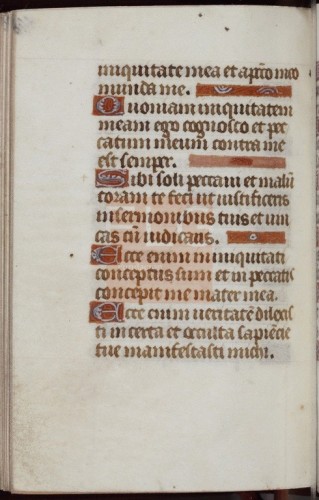 iniquitate mea et a pctō meo
munda me.
Quoniam iniquitatem
meam ego cognosco et pec
catum meum contra me
est semper.
Tibi soli peccaui et malū
coram te feci ut iustificeris
in sermonibus tuis et uin
cas cū iudicaris.
Ecce enim in iniquitati
conceptus sum et in peccatis
concepit me mater mea.
Ecce enim ueritatē dilexis
ti incerta et occulta sapiēcie
tue manifestasti michi.